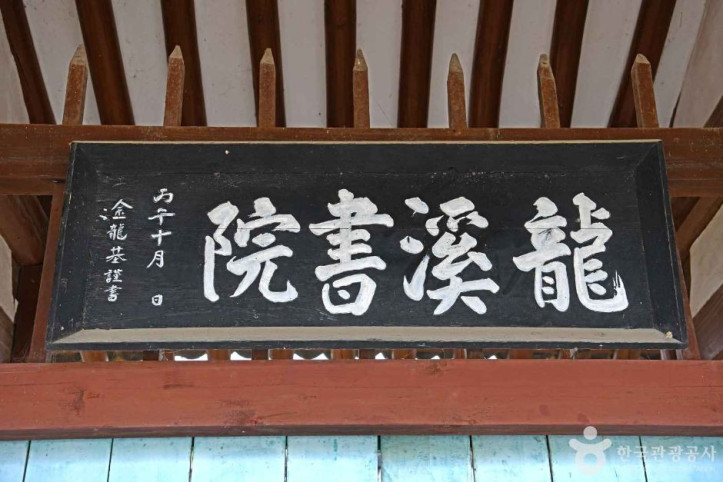 龍溪書院
丙午十月 日
途龍基謹書
한국관광공사